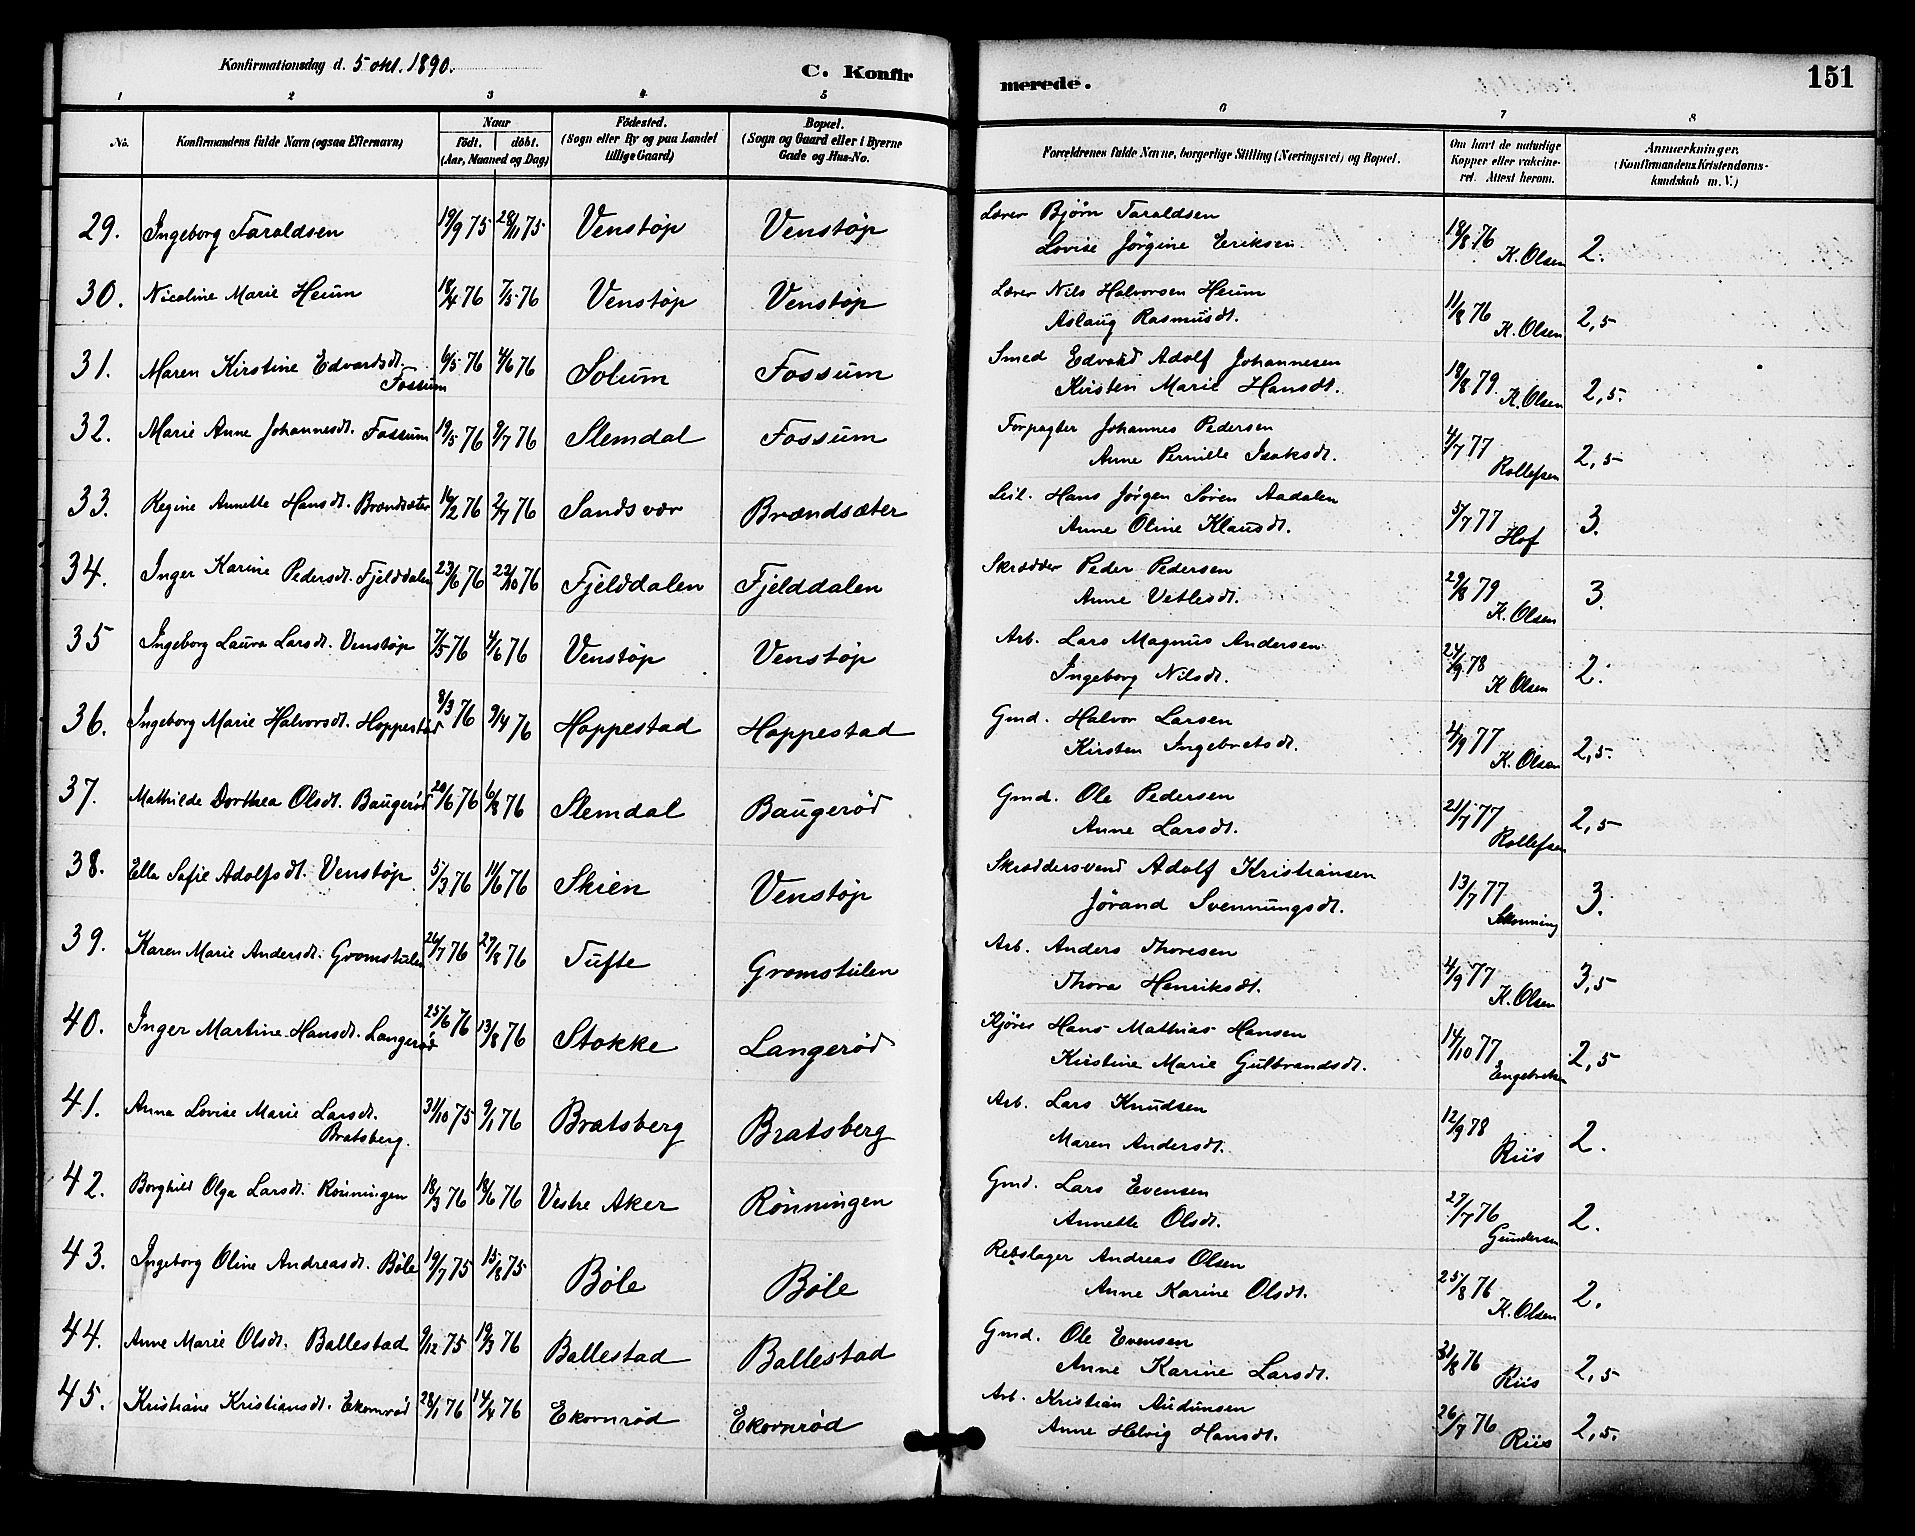 Konfirmationsdag d. 5 okt. 1890.
C. Konfirmerede.
151
1 2 3 4 5 6 7 8
No.
Konfirmandens fulde Navn (ogsaa Efternavn)
Naar
födt. döbt.
(Aar, Maaned og Dag)
Födested.
(Sogn eller By og paa Landet
tillige Gaard)
Bopæl.
(Sogn og Gaard eller i Byerne
Gade og Hus-No.
Forældrenes fulde Navne, borgerlige Stilling (Næringsvei) og Bopæl.
Om havt de naturlige
Kopper eller vakcine-
ret. Attest herom.
Anmærkninger,
(Konfirmandens Kristendoms-
kundskab m. V.)
29. Ingeborg Taraldsen 19/9 75 28/11 75 Venstøp Venstøp Lærer Bjørn Taraldsen
Lovise Jörgine Eriksen 18/8 76 K. Olsen 2.
30. Nicoline Marie Heium 18/4 76 7/5 76 Venstøp Venstøp Lærer Nils Halvorsen Heium
Aslaug Rasmusdt. 11/8 76 K. Olsen 2,5
31. Maren Kirstine Edvardsdt. Fossum 6/5 76 4/6 76 Solum Fossum Smed Edvard Adolf Johannesen
Kirsten Marie Hansdt. 18/8 79 K. Olsen 2,5.
32. Marie Anne Johannesdt. Fossum 19/5 76 9/7 76 Slemdal Fossum Forpagter Johannes Pedersen
Anne Pernille Isaksdt. 4/7 77 Rollefsen 2,5
33. Regine Annette Hansdt. Brændsæter 16/2 76 2/7 76 Sandsvær Brændsæter Leil. Hans Jörgen Sören Aadalen
Anne Oline Klausdt. 5/7 77 Hof 3.
34. Inger Karine Pedersdt. Fjelddalen 23/6 76 22/10 76 Fjelddalen Fjelddalen Skrædder Peder Pedersen
Anne Vetlesdt. 29/8 79 K. Olsen 3.
35 Ingeborg Laura Larsdt. Venstøp 7/5 76 4/6 76 Venstøp Venstøp Arb. Lars Magnus Andersen
Ingeborg Nilsdt. 24/9 78 K Olsen 2.
36. Ingeborg Marie Halvorsdt. Hoppestad 8/3 76 9/4 76 Hoppestad Hoppestad Gmd. Halvor Larsen
Kirsten Ingebretsdt. 4/9 77 K. Olsen 2,5.
37. Mathilde Dorthea Olsdt. Baugerød 20/6 76 6/8 76 Slemdal Baugerød Gmd. Ole Pedersen
Anne Larsdt. 21/7 77 Rollefsen 2,5
38. Ella Sofie Adolfsdt. Venstøp 5/3 76 11/6 76 Skien Venstøp Skræddersvend Adolf Kristiansen
Jørand Svennungsdt. 13/7 77 3.
39. Karen Marie Andersdt. Gromstulen 26/7 76 27/8 76 Tufte Gromstulen Arb. Anders Thoresen
Thora Henriksdt. 4/9 77 K. Olsen 3,5
40. Inger Martine Hansdt. Langerød 25/6 76 13/8 76 Stokke Langerød Kjörer Hans Mathias Hansen
Kirstine Marie Gulbrandsdt. 14/10 77 2,5
41. Anna Lovise Marie Larsdt. Bratsberg. 31/10 75 9/1 76 Bratsberg Bratsberg Arb. Lars Knudsen
Maren Andersdt. 12/9 78 Riis 2.
42. Borghild Olga Larsdt. Rönningen 18/3 76 18/6 76 Vestre Aker Rönningen Gmd. Lars Evensen
Annette Olsdt. 27/7 76 Gundersen 2.
43. Ingeborg Oline Andreasdt. Bøle 19/7 75 15/8 75 Bøle Bøle Rebslager Andreas Olsen
Anne Karine Olsdt. 25/8 76 K. Olsen 2.
44. Anne Marie Olsdt. Ballestad 9/12 75 19/3 76 Ballestad Ballestad Gmd. Ole Evensen
Anne Karine Larsdt. 31/8 76 Riis 2,5
45. Kristiane Kristiansdt. Ekornrød 28/1 76 17/4 76 Ekornrød Ekornrød Arb. Kristian Audunsen
Anne Helvig Hansdt. 26/7 76 Riis 2,5.